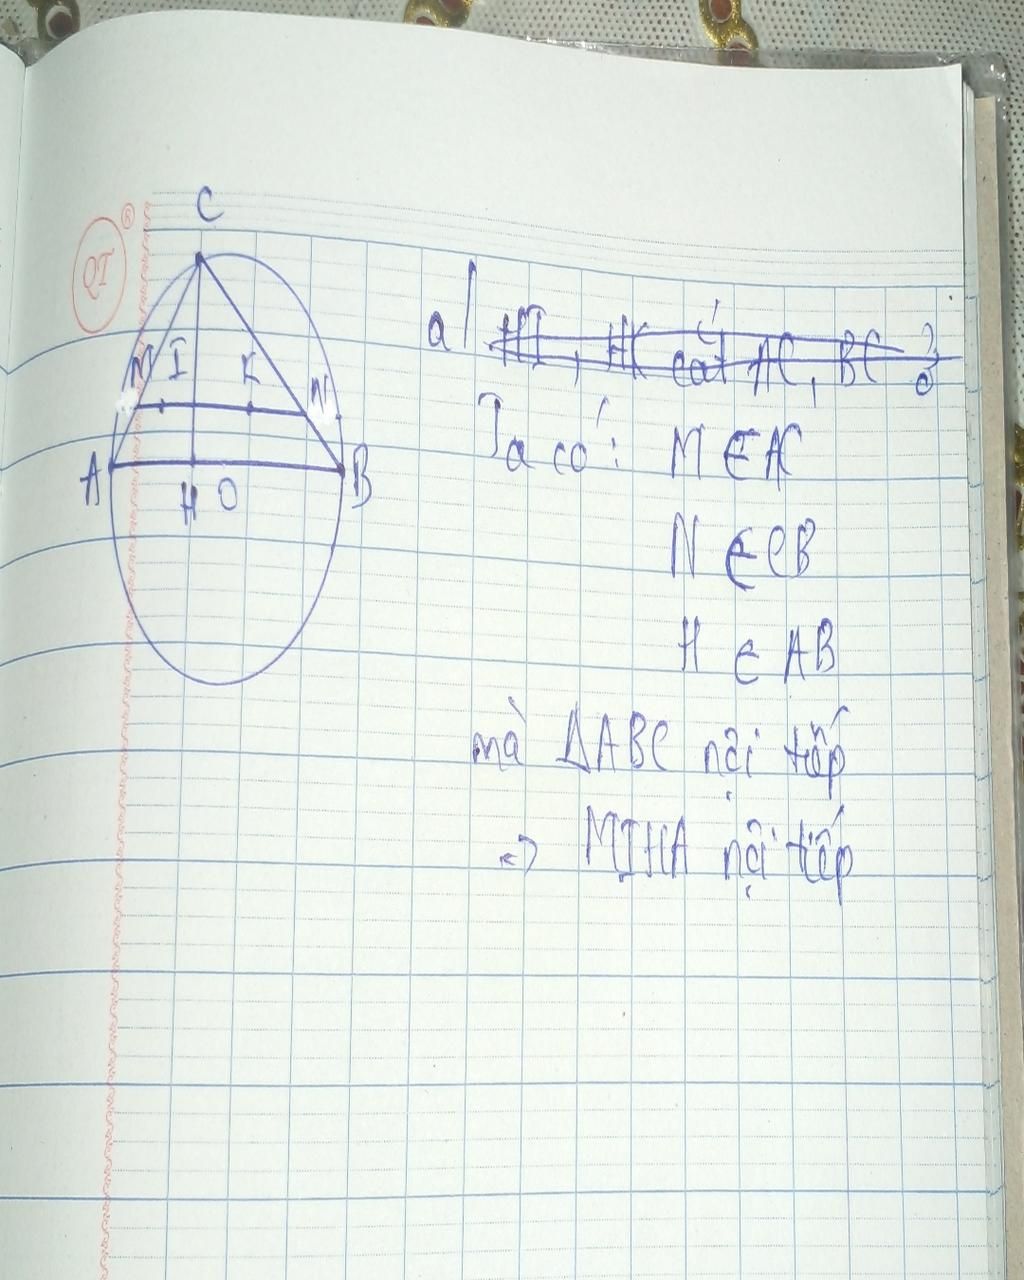 C
M I K N
A H O B
a/ HI, HK cắt AC, BC
Ta có: M ∈ AC
N ∈ CB
H ∈ AB
mà ΔABC nội tiếp
=> MIHA nội tiếp